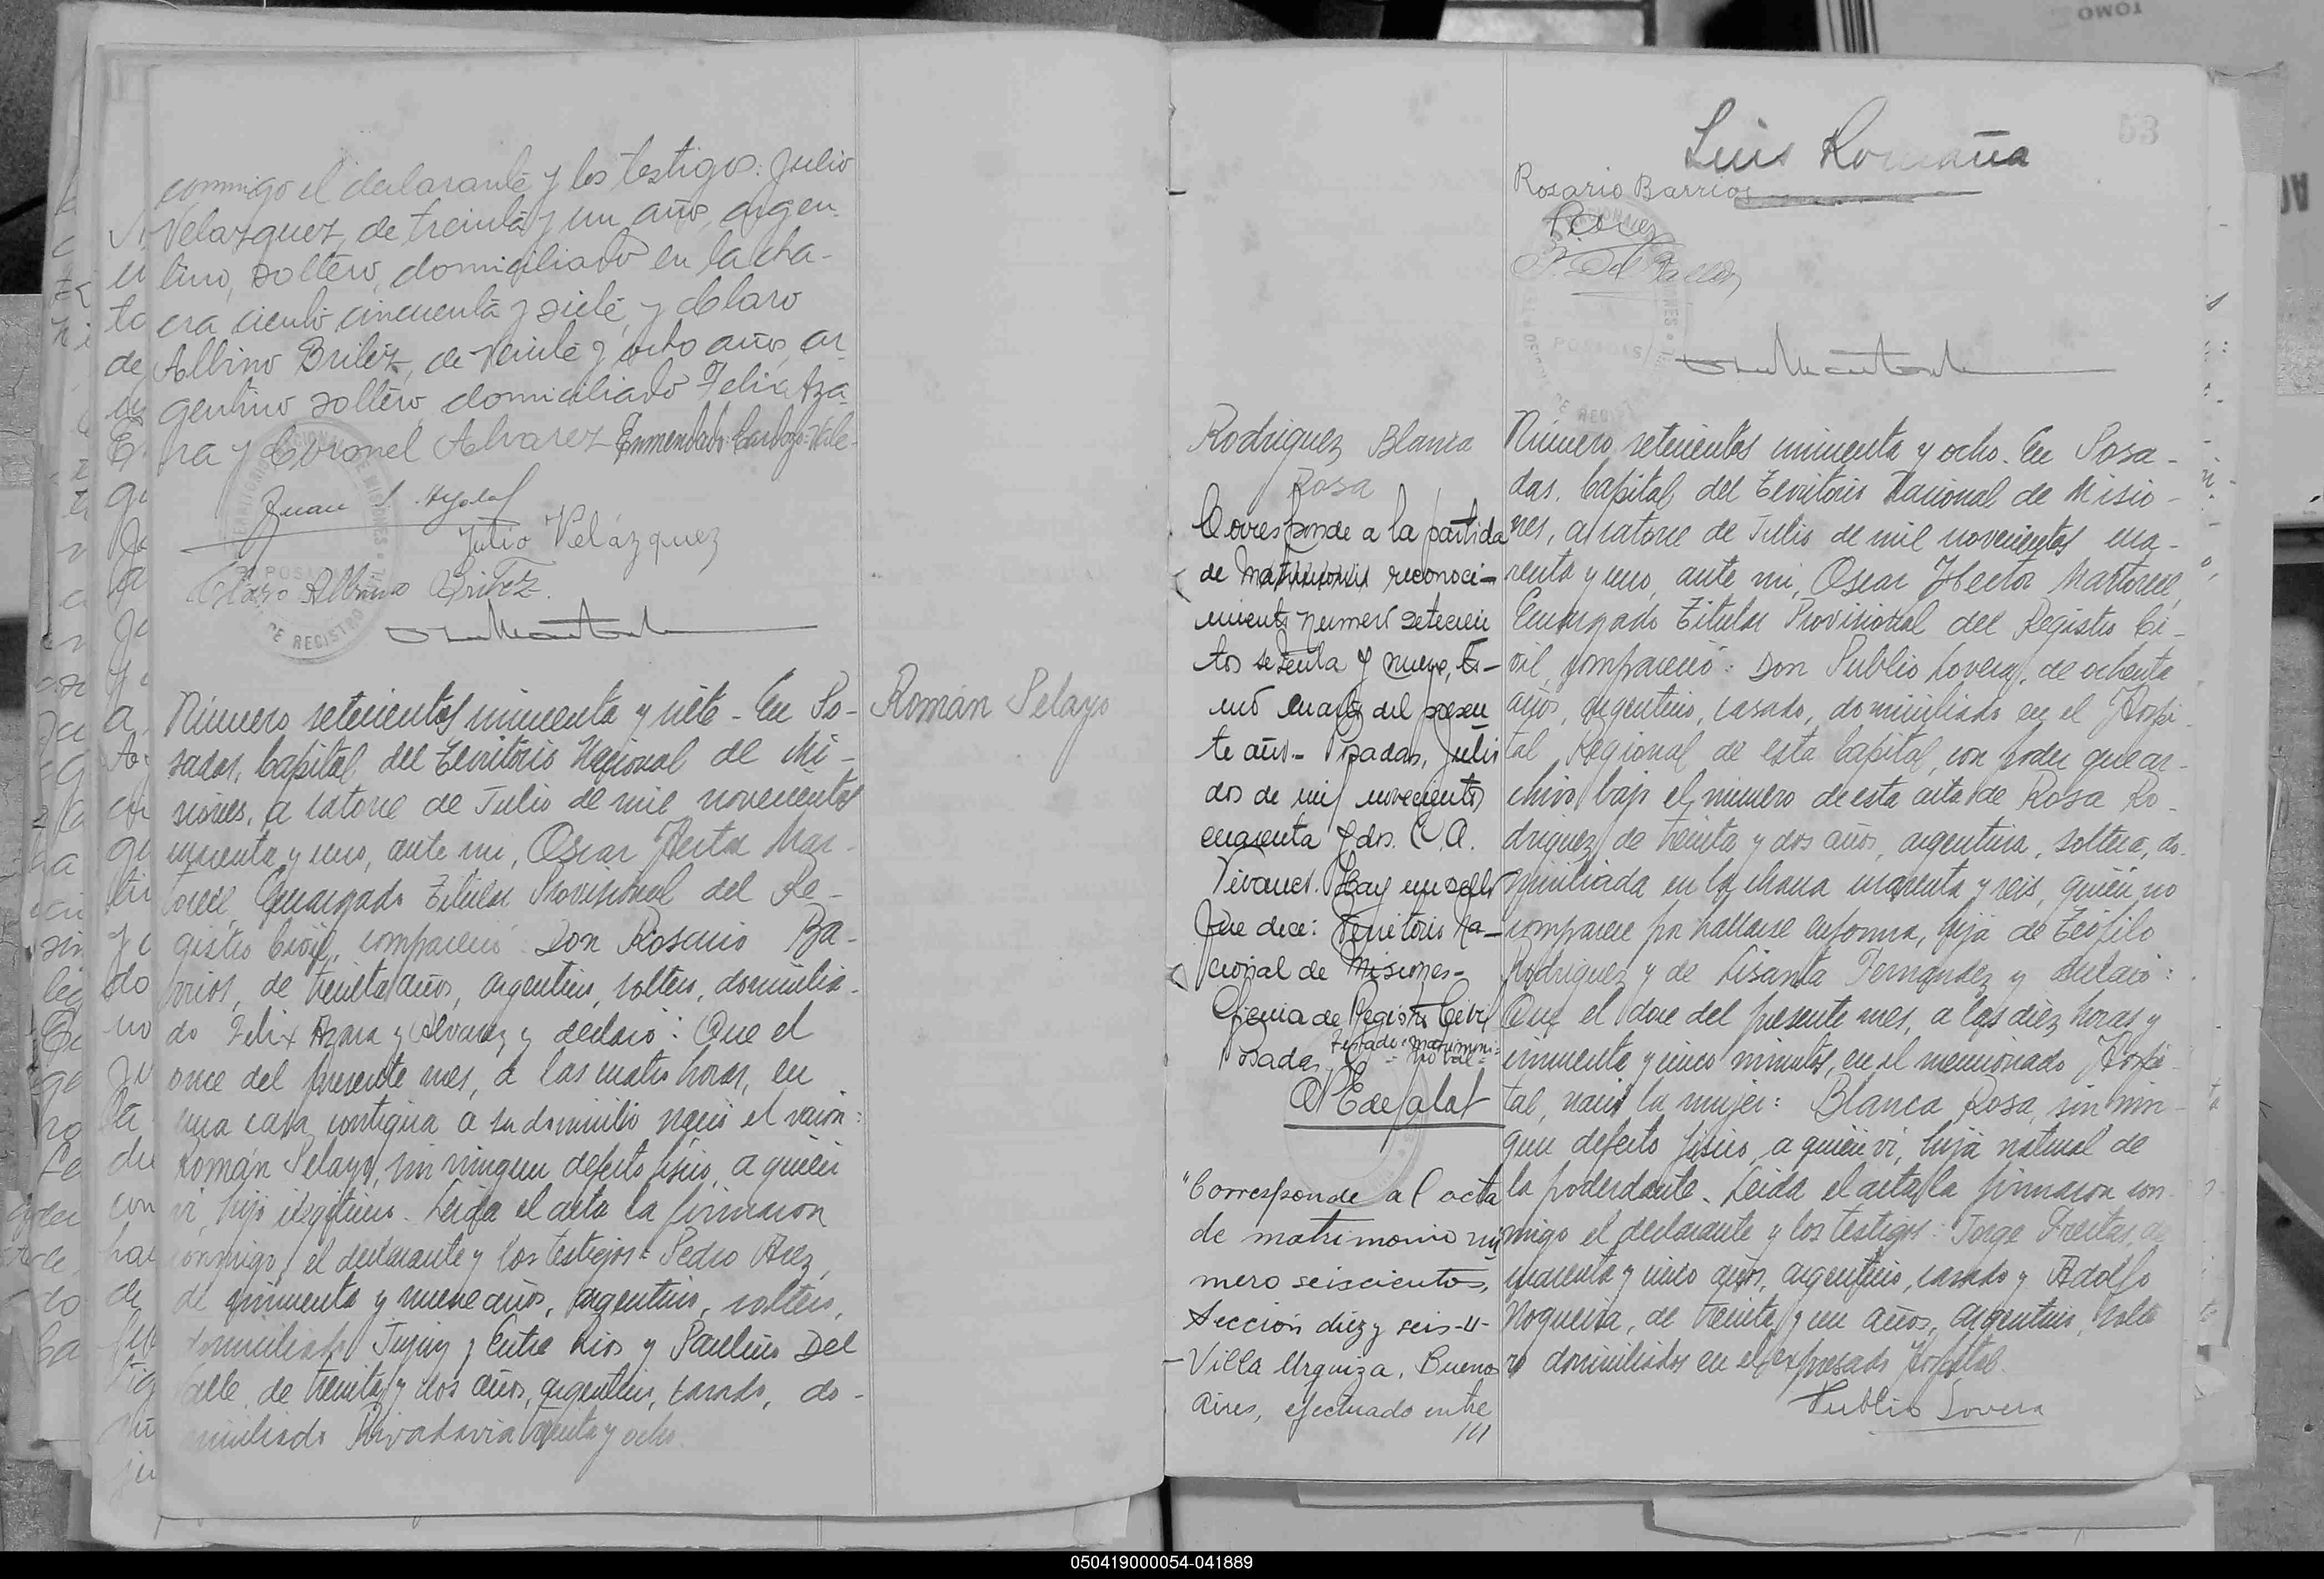 conmigo el declarante y los testigos: Julio
Velazquez, de treinta y un año, argen-
tino, soltero, domiciliado en la cha-
cra ciento cincuenta y siete, y Claro
Albino Britez, de veinte y ocho años, ar
gentino soltero domiciliado Felix Aza
ra y Coronel Alvarez Enmendado: Cardozo: Vale-
Juan
Julio Velázquez
Claro Albino Britez.
Román Pelayo
Número setecientos cincuenta y siete - En Po-
sadas, Capital del Territorio Nacional de Mi-
siones, a catorce de Julio de mil novecientos
cuarenta y uno, ante mi, Oscar Hector Mar-
torell, Encargado Titular Provisional del Re-
gistro Civil, compareció: Don Rosario Ba-
rrios, de treinta años, argentino, soltero, domicilia-
do Felix Azara y Alvarez y declaró: Que el
once del presente mes, a las cuatro horas, en
una casa contigua a su domicilio nació el varón:
Román Pelayo, sin ningun defecto fisico, a quien
vi, hijo ilegitimo. Leida el acta la firmaron
conmigo, el declarante y los testigos: Pedro Baez,
de cincuenta y nueve años, argentino, soltero,
domiciliado Jujuy y Entre Rios y Paulino Del
Valle, de treinta y dos años, argentino, casado, do-
miciliado Rivadavia y ocho.
53
Luis Romaña
Rosario Barrios
P. Del Valle
POSADAS
Rodriguez Blanca
Rosa
Corresponde a la partida
de reconoci-
miento numero setecien
tos setenta y nueve, to-
mo cuarto del presen
te año.- Posadas, Julio
dos de mil novecientos
cuarenta y dos. C. A.
Hay un sello
que dice: Territorio Na-
cional de Misiones-
Oficina de Registro Civil
Testado: matrimoni:
Posadas. - no vale -
"Corresponde al acta
de matrimonio nú
mero seiscientos,
Sección diez y seis -
- Villa Urquiza, Buenos
Aires, efectuado entre
///
Número setecientos cincuenta y ocho. En Posa-
das, Capital del Territorio Nacional de Misio-
nes, a catorce de Julio de mil novecientos cua-
renta y uno, ante mi, Oscar Hector Martorell,
Encargado Titular Provisional del Registro Ci-
vil, compareció: Don Publio Lovera, de ochenta
años, argentino, casado, domiciliado en el Hospi-
tal Regional de esta Capital, con poder que ar-
chivo bajo el número de esta acta de Rosa Ro-
driguez de treinta y dos años, argentina, soltera, do-
miciliada en la chacra cuarenta y seis, quién no
comparece por hallarse enferma, hija de Teófilo
Rodriguez y de Lisanta Fernandez y declaró:
Que el doce del presente mes, a las diez horas y
cincuenta y cinco minutos, en el mencionado Hospi-
tal, nació la mujer: Blanca Rosa, sin nin-
gun defecto fisico, a quién vi, hija natural de
la poderdante. Leida el acta la firmaron con
migo el declarante y los testigos: Jorge Freitas, de
cuarenta y cinco años, argentino, casado y Adolfo
Nogueira, de treinta y un años, argentino, solte
ro domiciliados en el expresado Hospital.
Publio Lovera
050419000054-041889